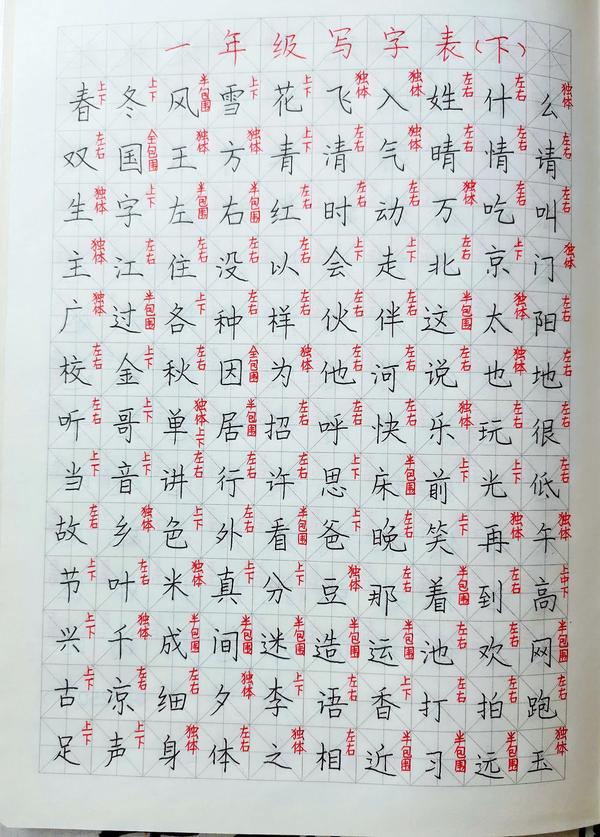 一年级写字表(下)
春上下 冬上下 风半包围 雪上下 花上下 飞独体 入独体 姓左右 什左右 么独体
双左右 国全包围 王独体 方独体 青上下 清左右 气独体 晴左右 情左右 请左右
生独体 字上下 左半包围 右半包围 红左右 时左右 动左右 万独体 吃左右 叫左右
主独体 江左右 住左右 没左右 以左右 会上下 走上下 北左右 京上下 门独体
广独体 过半包围 各上下 种左右 样左右 伙左右 伴左右 这半包围 太独体 阳左右
校左右 金上下 秋左右 因全包围 为独体 他左右 河左右 说左右 也独体 地左右
听左右 哥上下 单独体上下 居半包围 招左右 呼左右 快左右 乐独体 玩左右 很左右
当上下 音上下 讲左右 行左右 许左右 思上下 床半包围 前上下 光上下 低左右
故左右 乡独体 色上下 外左右 看半包围 爸上下 晚左右 笑上下 再独体 午独体
节上下 叶左右 米独体 真上下 分上下 豆独体 那左右 着半包围 到左右 高上中下
兴上下 千独体 成半包围 间半包围 迷半包围 造半包围 运半包围 池左右 欢左右 网半包围
古上下 凉左右 细左右 夕独体 李上下 语左右 香上下 打左右 拍左右 跑左右
足上下 声上下 身独体 体左右 之独体 相左右 近半包围 习半包围 远半包围 玉独体